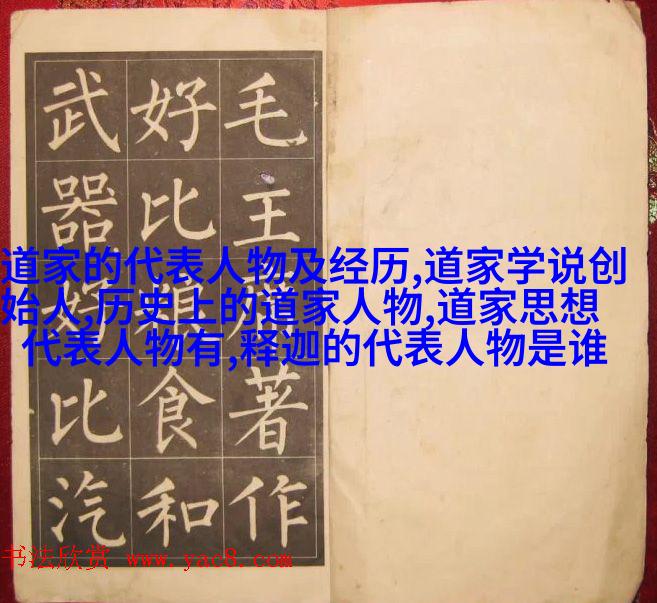 毛主著作
好比食和
武器好比汽
道家的代表人物及经历,道家学说创
始人,历史上的道家人物,道家思想
代表人物有,释迦的代表人物是谁
书法欣赏 www.yac8.com